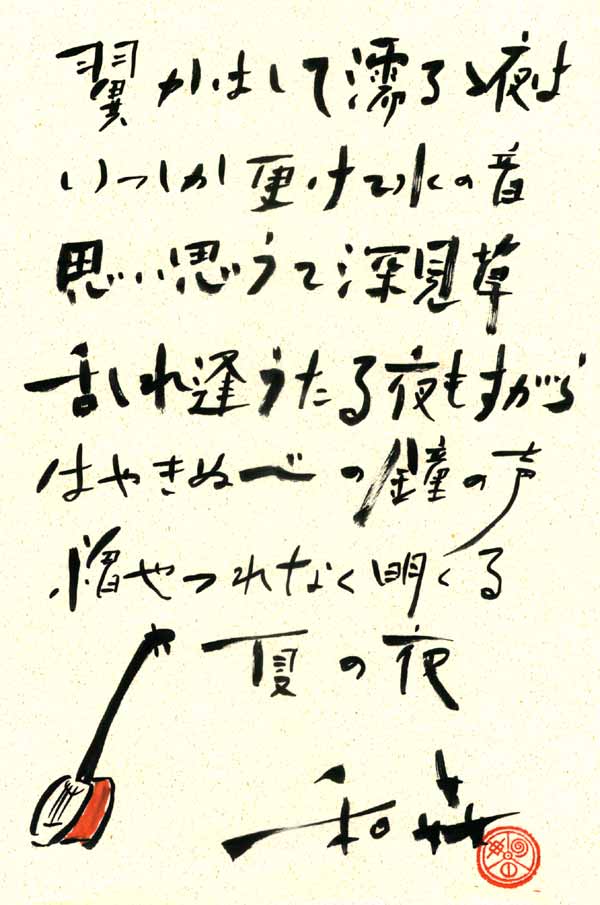 翼かはして濡るゝ夜は
いつしか更けて水の音
思い思うて深見草
乱れ逢うたる夜もすがら
はやきぬべの鐘の声
憎やつれなく明くる
夏の夜